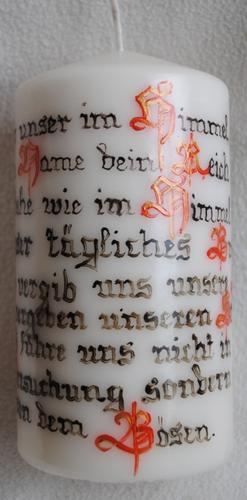 unser im Himmel
Name dein Reich
wie im Himmel
tägliches
vergib uns unser
vergeben unseren
führe uns nicht in
suchung sondern
von dem Bösen.